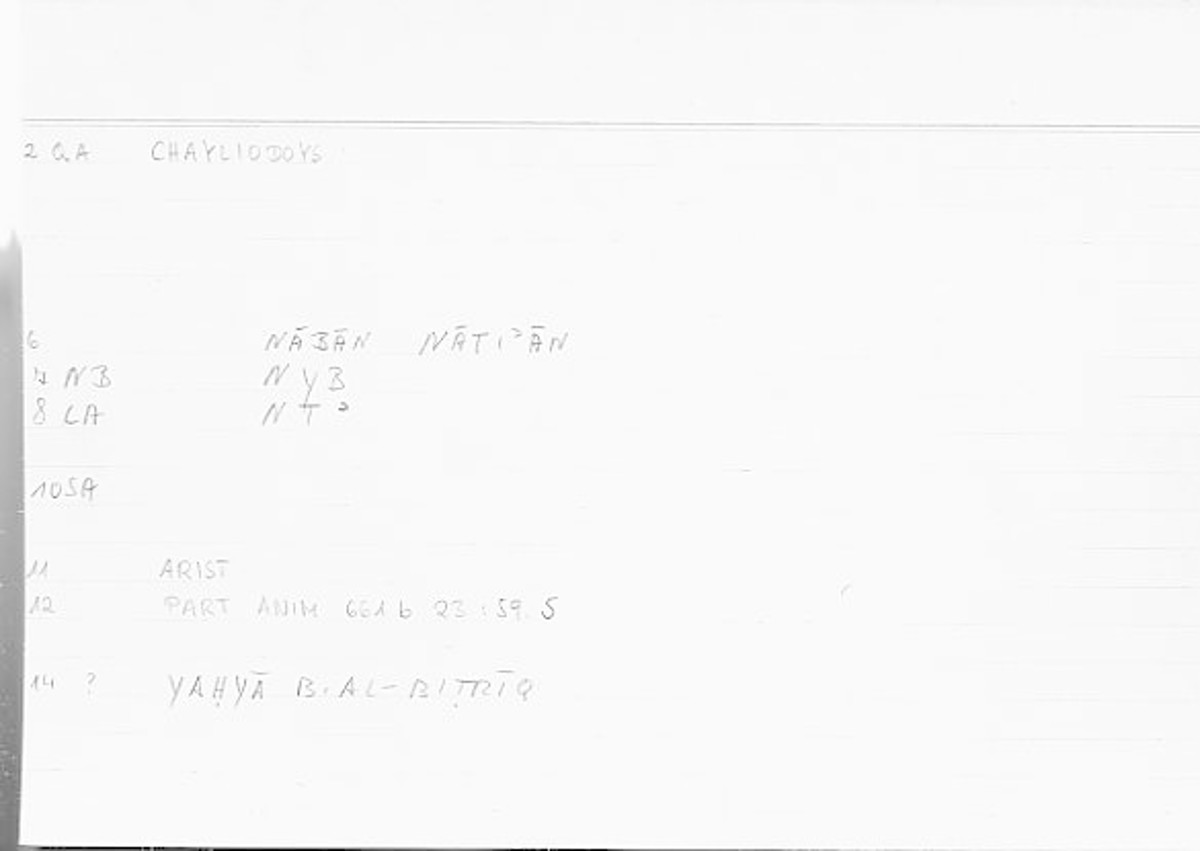 2 QA CHAYLIODOYS
6 NĀBĀN NĀTIʾĀN
7 NB NYB
8 LA NTʾ
10 SA
11 ARIST
12 PART ANIM 661 b 23 : 59.5
14 ? YAḤYĀ B. AL-BIṬRĪQ